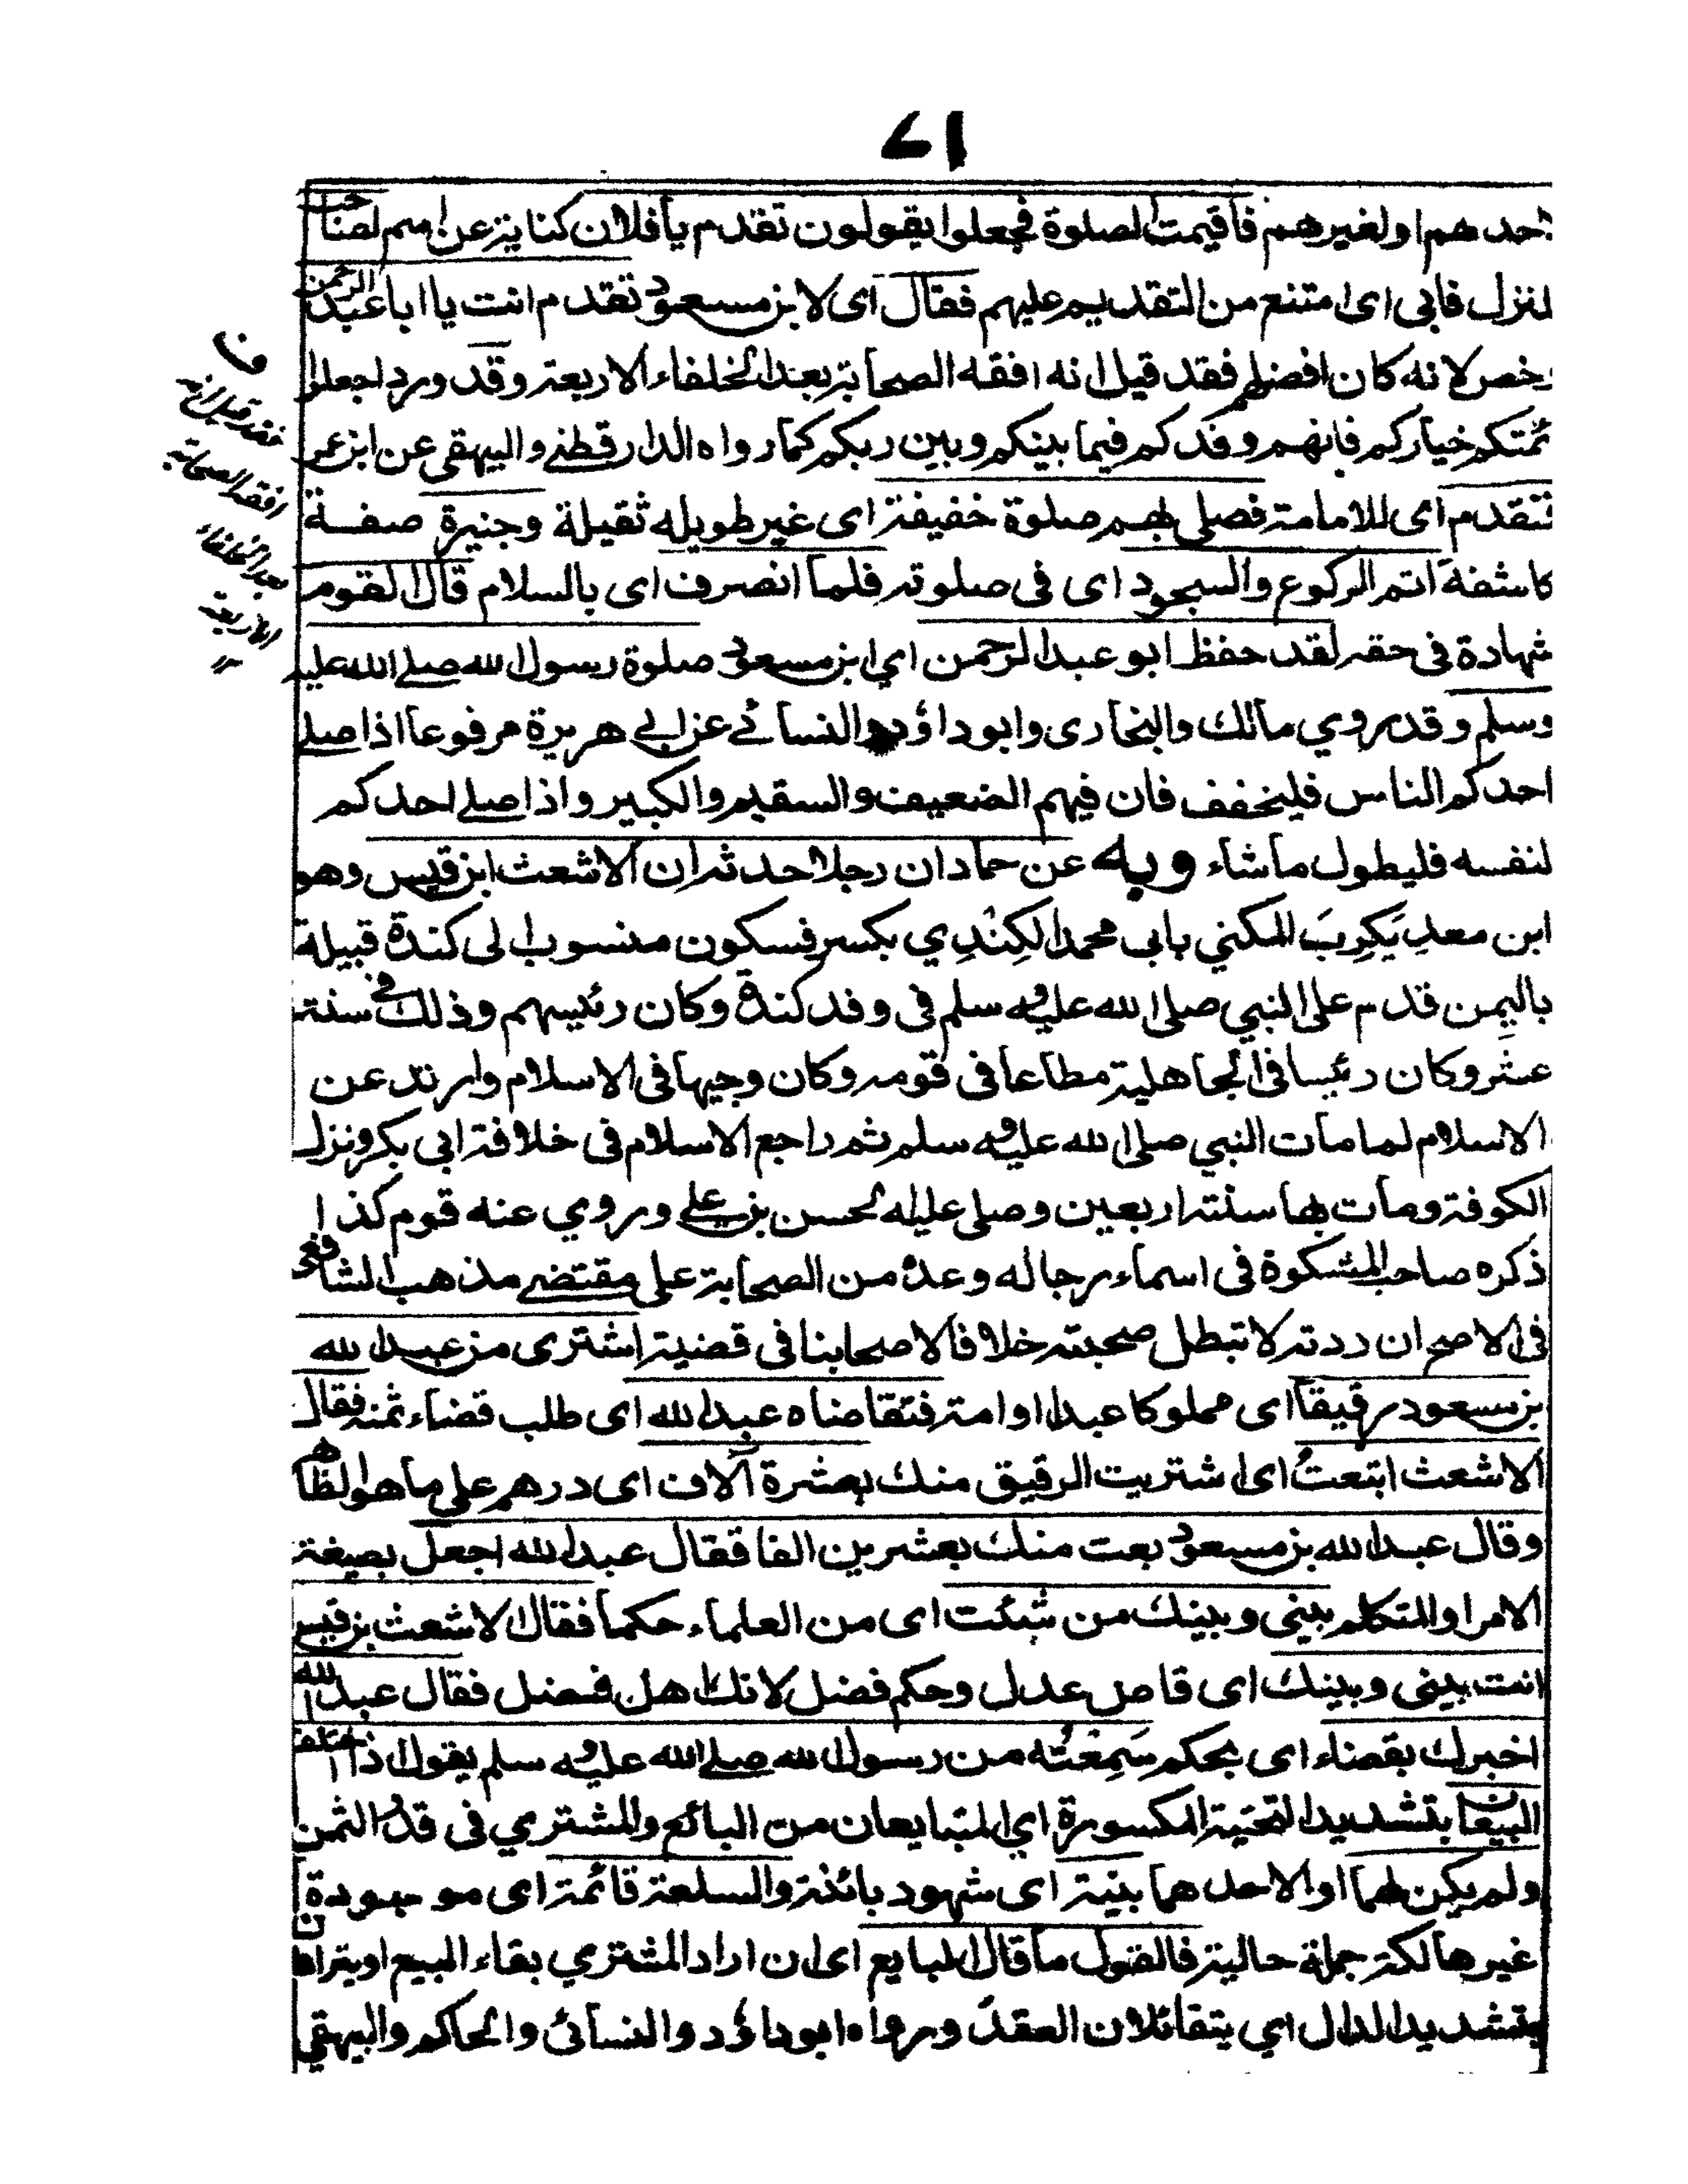 ١٧
احدهم او لغيرهم فاقيمت الصلوة فجعلوا يقولون تقدم يا فلان كناية عن امهم لصاحب
المنزل فابى اى امتنع من التقديم عليهم فقال اى لابن مسعود تقدم انت يا ابا عبد الرحمن
وخص لانه كان افضلهم فقد قيل انه افقه الصحابة بعد الخلفاء الاربعة وقد ورد اجعلوا
ئمتكم خياركم فانهم وفدكم فيما بينكم وبين ربكم كما رواه الدارقطنے والبيهقي عن ابن عمر
فتقدم اى للامامة فصلى بهم صلوة خفيفة اى غير طويله ثقيلة وجنيزة صفة
كاشفة اتم الركوع والسجود اى فى صلوته فلما انصرف اى بالسلام قال القوم
شهادة فى حقه لقد حفظ ابو عبد الرحمن اي ابن مسعود صلوة رسول الله صلے الله عليه
وسلم وقد روي مالك والبخارى وابو داؤد والنسائے عن ابے هريرة مرفوعا اذا صلے
احدكم الناس فليخفف فان فيهم الضعيف والسقيم والكبير واذا صلے احدكم
لنفسه فليطول ما شاء وبه عن حماد ان رجلا حدثه ان الاشعث ابن قيس وهو
ابن معدِ يَكرِبَ المكني بابى محمد الكِنْدِي بكسر فسكون منسوب الى كندة قبيلة
باليمن قدم على النبي صلى الله عليه وسلم فى وفد كندة وكان رئيسهم وذلك فے سنة
عشر وكان رئيسا فى الجاهلية مطاعا فى قومه وكان وجيها فى الاسلام وارتد عن
الاسلام لما مات النبي صلى الله عليه وسلم ثم راجع الاسلام فى خلافة ابى بكر ونزل
الكوفة ومات بها سنة اربعين وصلى عليه الحسن بن علے وروي عنه قوم كذا
ذكره صاحب المشكوة فى اسماء رجاله وعدّ من الصحابة على مقتضے مذهب الشافعے
فى الاصح ان ردته لا تبطل صحبته خلافا لاصحابنا فى قضية اشترى من عبد الله
بن مسعود رقيقاً اى مملوكا عبدا او امة فتقاضاه عبد الله اى طلب قضاء ثمنه فقال
الاشعث ابتعتُ اى اشتريت الرقيق منك بعشرة آلاف اى درهم على ما هو الظاهر
وقال عبد الله بن مسعود بعت منك بعشرين الفا فقال عبد الله اجعل بصيغة
الامر او المتكلم بينى وبينك من شئت اى من العلماء حكما فقال الاشعث بن قيس
انت بينى وبينك اى قاض عدل وحكم فضل لانك اهل فضل فقال عبد الله
اخبرك بقضاء اى بحكم سَمِعْتُه من رسول الله صلے الله عليه وسلم يقول اذا اختلف
البيعان بتشديد التحتية المكسورة اي المتبايعان من البائع والمشتري فى قدر الثمن
ولم يكن لهما او لاحدهما بينة اى شهود بائنة والسلعة قائمة اى موجودة
غير هالكة جملة حالية فالقول ما قال البايع اى ان اراد المشتري بقاء المبيع او يترادان
بتشديد الدال اي يتقائلان العقد ورواه ابو داؤد والنسائى والحاكم والبيهقي
ف
فقد قيل انه
افقه الصحابة
بعد الخلفاء
الاربعة